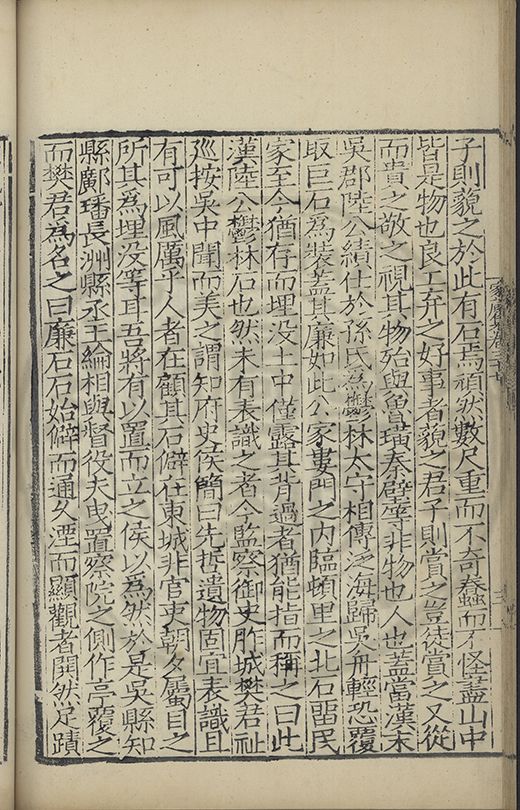 子則藐之於此有石焉頑然數尺重而不奇蠢而不怪蓋山中
皆是物也良工弃之好事者藐之君子則賞之豈徒賞之又從
而貴之敬之視其物殆與魯璜秦璧等非物也人也蓋當漢末
吳郡陸公績仕於孫氏為鬱林太守相傳泛海歸吳舟輕恐覆
取巨石為裝蓋其廉如此公家婁門之內臨頓里之北石留民
家至今猶存而埋没土中僅露其背過者猶能指而稱之曰此
漢陸公鬱林石也然未有表識之者今監察御史胙城樊君祉
廵按吳中聞而美之謂知府史侯簡曰先哲遺物固宜表識且
有可以風厲乎人者在顧其石僻在東城非官吏朝夕屬目之
所其為埋没等耳吾將有以置而立之侯以為然於是吳縣知
縣鄺璠長洲縣丞王綸相與督役夫曳置察院之側作亭覆之
而樊君為名之曰廉石石始僻而通久湮而顯觀者閧然足蹟
家藏集卷三十